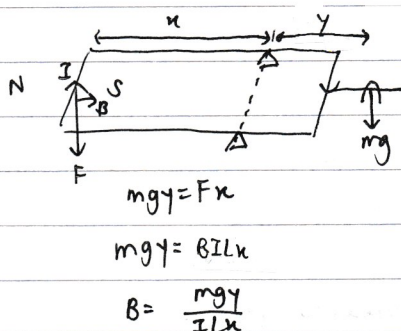 x y
N I S
B
F mg
mgy = Fx
mgy = BILx
B = mgy
ILx